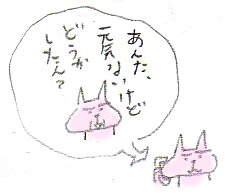 あんた、
元気ないけど
どうか
したん?